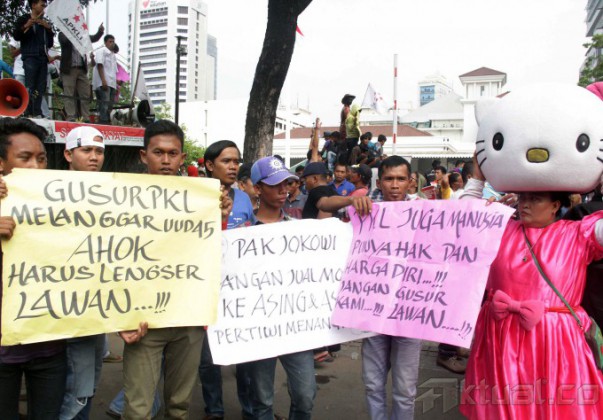 GUSUR PKL
MELANGGAR UUD45
AHOK
HARUS LENGSER
LAWAN...!!!
PAK JOKOWI
JANGAN JUAL MO
KE ASING &
PERTIWI MENAN
JUGA MANUSIA
PUNYA HAK DAN
HARGA DIRI...!!!
JANGAN GUSUR
KAMI...!!! LAWAN....!!!
aktual.co